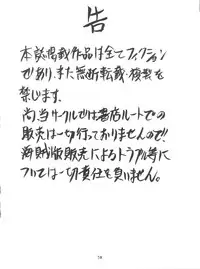 告
本誌掲載作品は全てフィクション
であり、また無断転載・複製を
禁じます。
尚、当サークルでは書店ルートでの
販売は一切行っておりませんので!
海賊版販売によるトラブル等に
ついては一切責任を負いません。